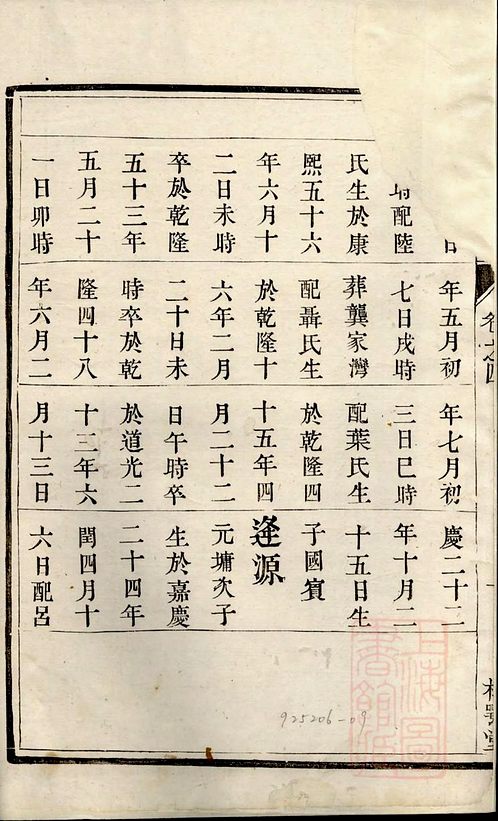 配陸
氏生於康
熙五十六
年六月十
二日未時
卒於乾隆
五十三年
五月二十
一日卯時
年五月初
七日戌時
葬龔家灣
配聶氏生
於乾隆十
六年二月
二十日未
時卒於乾
隆四十八
年六月二
年七月初
三日巳時
配葉氏生
於乾隆四
十五年四
月二十二
日午時卒
於道光二
十三年六
月十三日
慶二十二
年十月二
十五日生
子國賓
逢源
元墉次子
生於嘉慶
二十四年
閏四月十
六日配呂
上海圖書館藏
925206-09